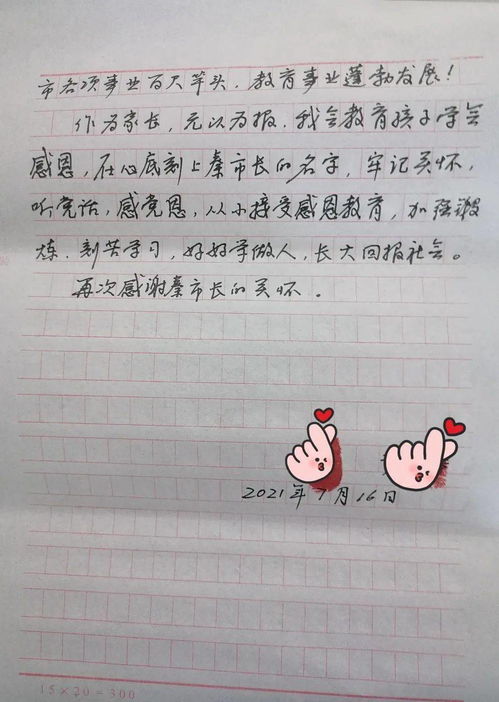 市各项事业百尺竿头,教育事业蓬勃发展!
作为家长,无以为报,我会教育孩子学会
感恩,在心底刻上秦市长的名字,牢记关怀,
听党话,感党恩,从小接受感恩教育,加强锻
炼,刻苦学习,好好学做人,长大回报社会。
再次感谢秦市长的关怀。
2021年7月16日
15×20=300